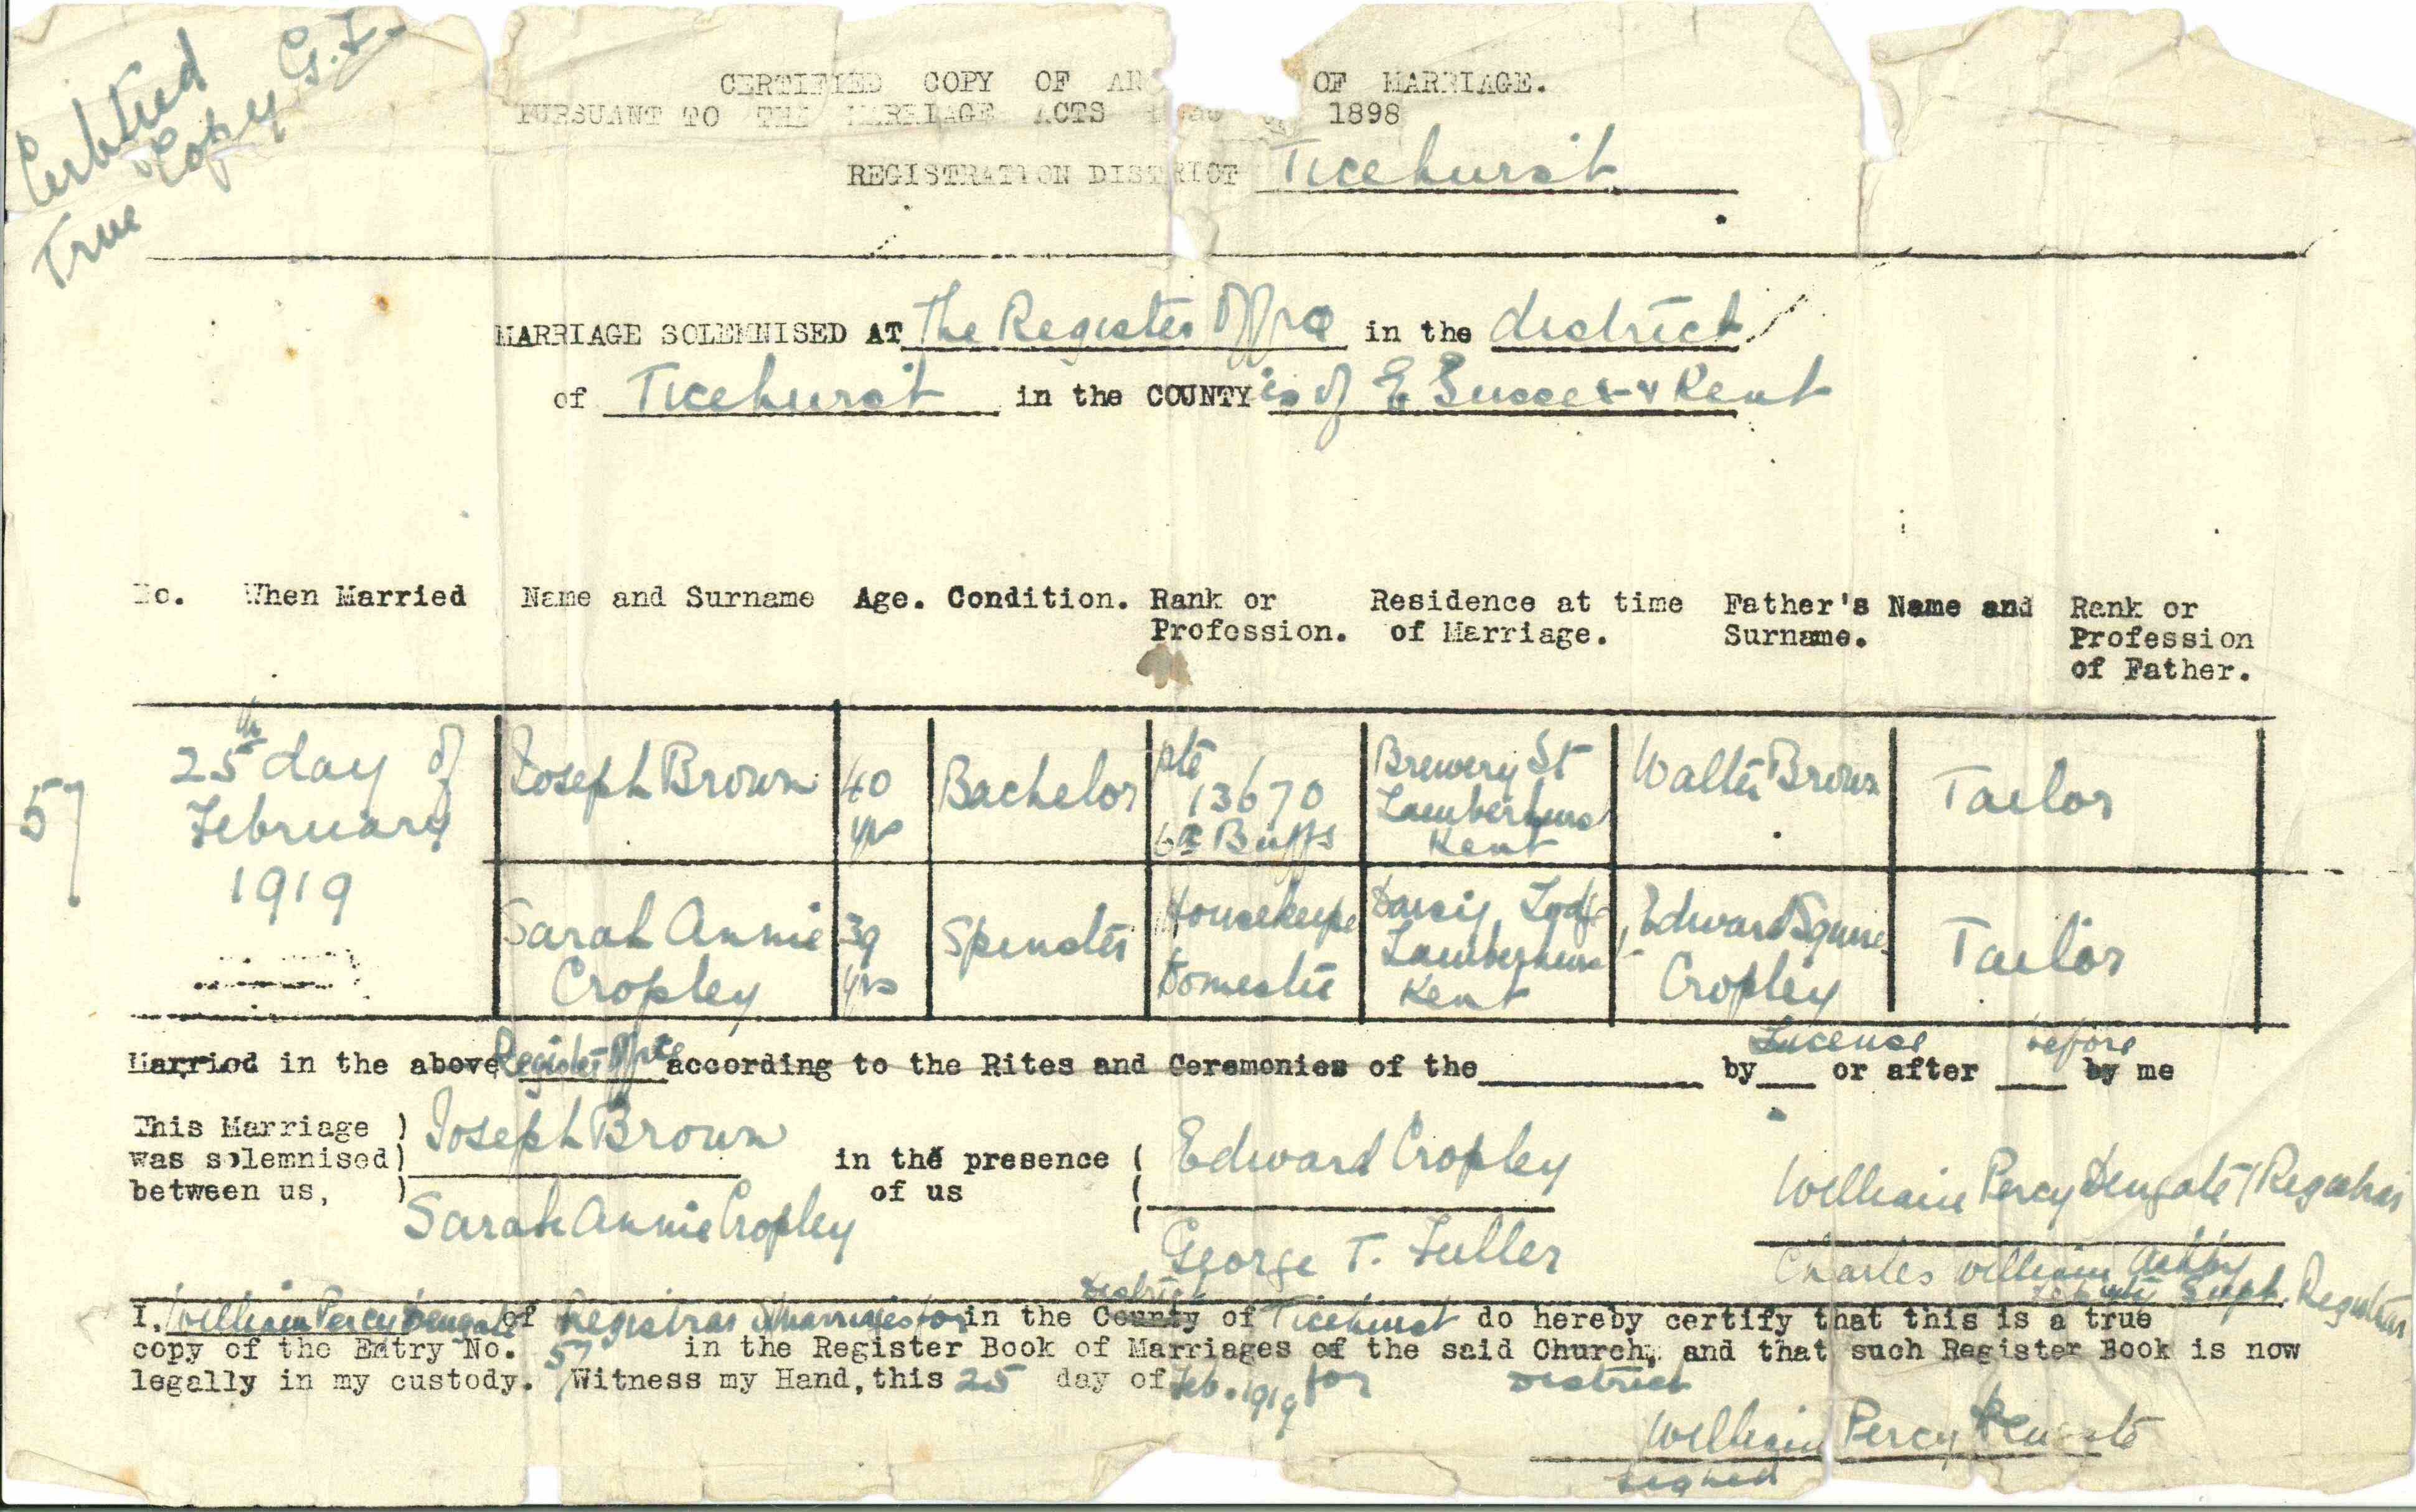 Certified
True Copy G.I.
CERTIFIED COPY OF AN OF MARRIAGE.
PURSUANT TO THE MARRIAGE ACTS 1898
REGISTRATION DISTRICT Ticehurst
MARRIAGE SOLEMNISED AT The Register Office in the district
of Ticehurst in the COUNTYies of E Sussex & Kent
No. When Married Name and Surname Age. Condition. Rank or Profession. Residence at time of Marriage. Father's Name and Surname. Rank or Profession of Father.
57 25th day of February 1919
Joseph Brown 40 yrs Bachelor Pte 13670 6th Buffs Brewery St Lamberhurst Kent Walter Brown Tailor
Sarah Annie Cropley 39 yrs Spinster Housekeeper Domestic Lodge Lamberhurst Kent Edward Squire Cropley Tailor
License before
Married in the above Register Office according to the Rites and Ceremonies of the by or after by me
This Marriage )
was solemnised)
between us, )
Joseph Brown
Sarah Annie Cropley
in the presence (
of us (
Edward Cropley
George T. Fuller
William Percy Dengate Registrar
Charles William Ashby
Deputy Supt. Registrar
District
I, William Percy Dengate of Registrar of marriages for in the County of Ticehurst do hereby certify that this is a true
copy of the Entry No. 57 in the Register Book of Marriages of the said Church, and that such Register Book is now
legally in my custody. Witness my Hand, this 25 day of Feb. 1919 for District
William Percy Dengate
signed